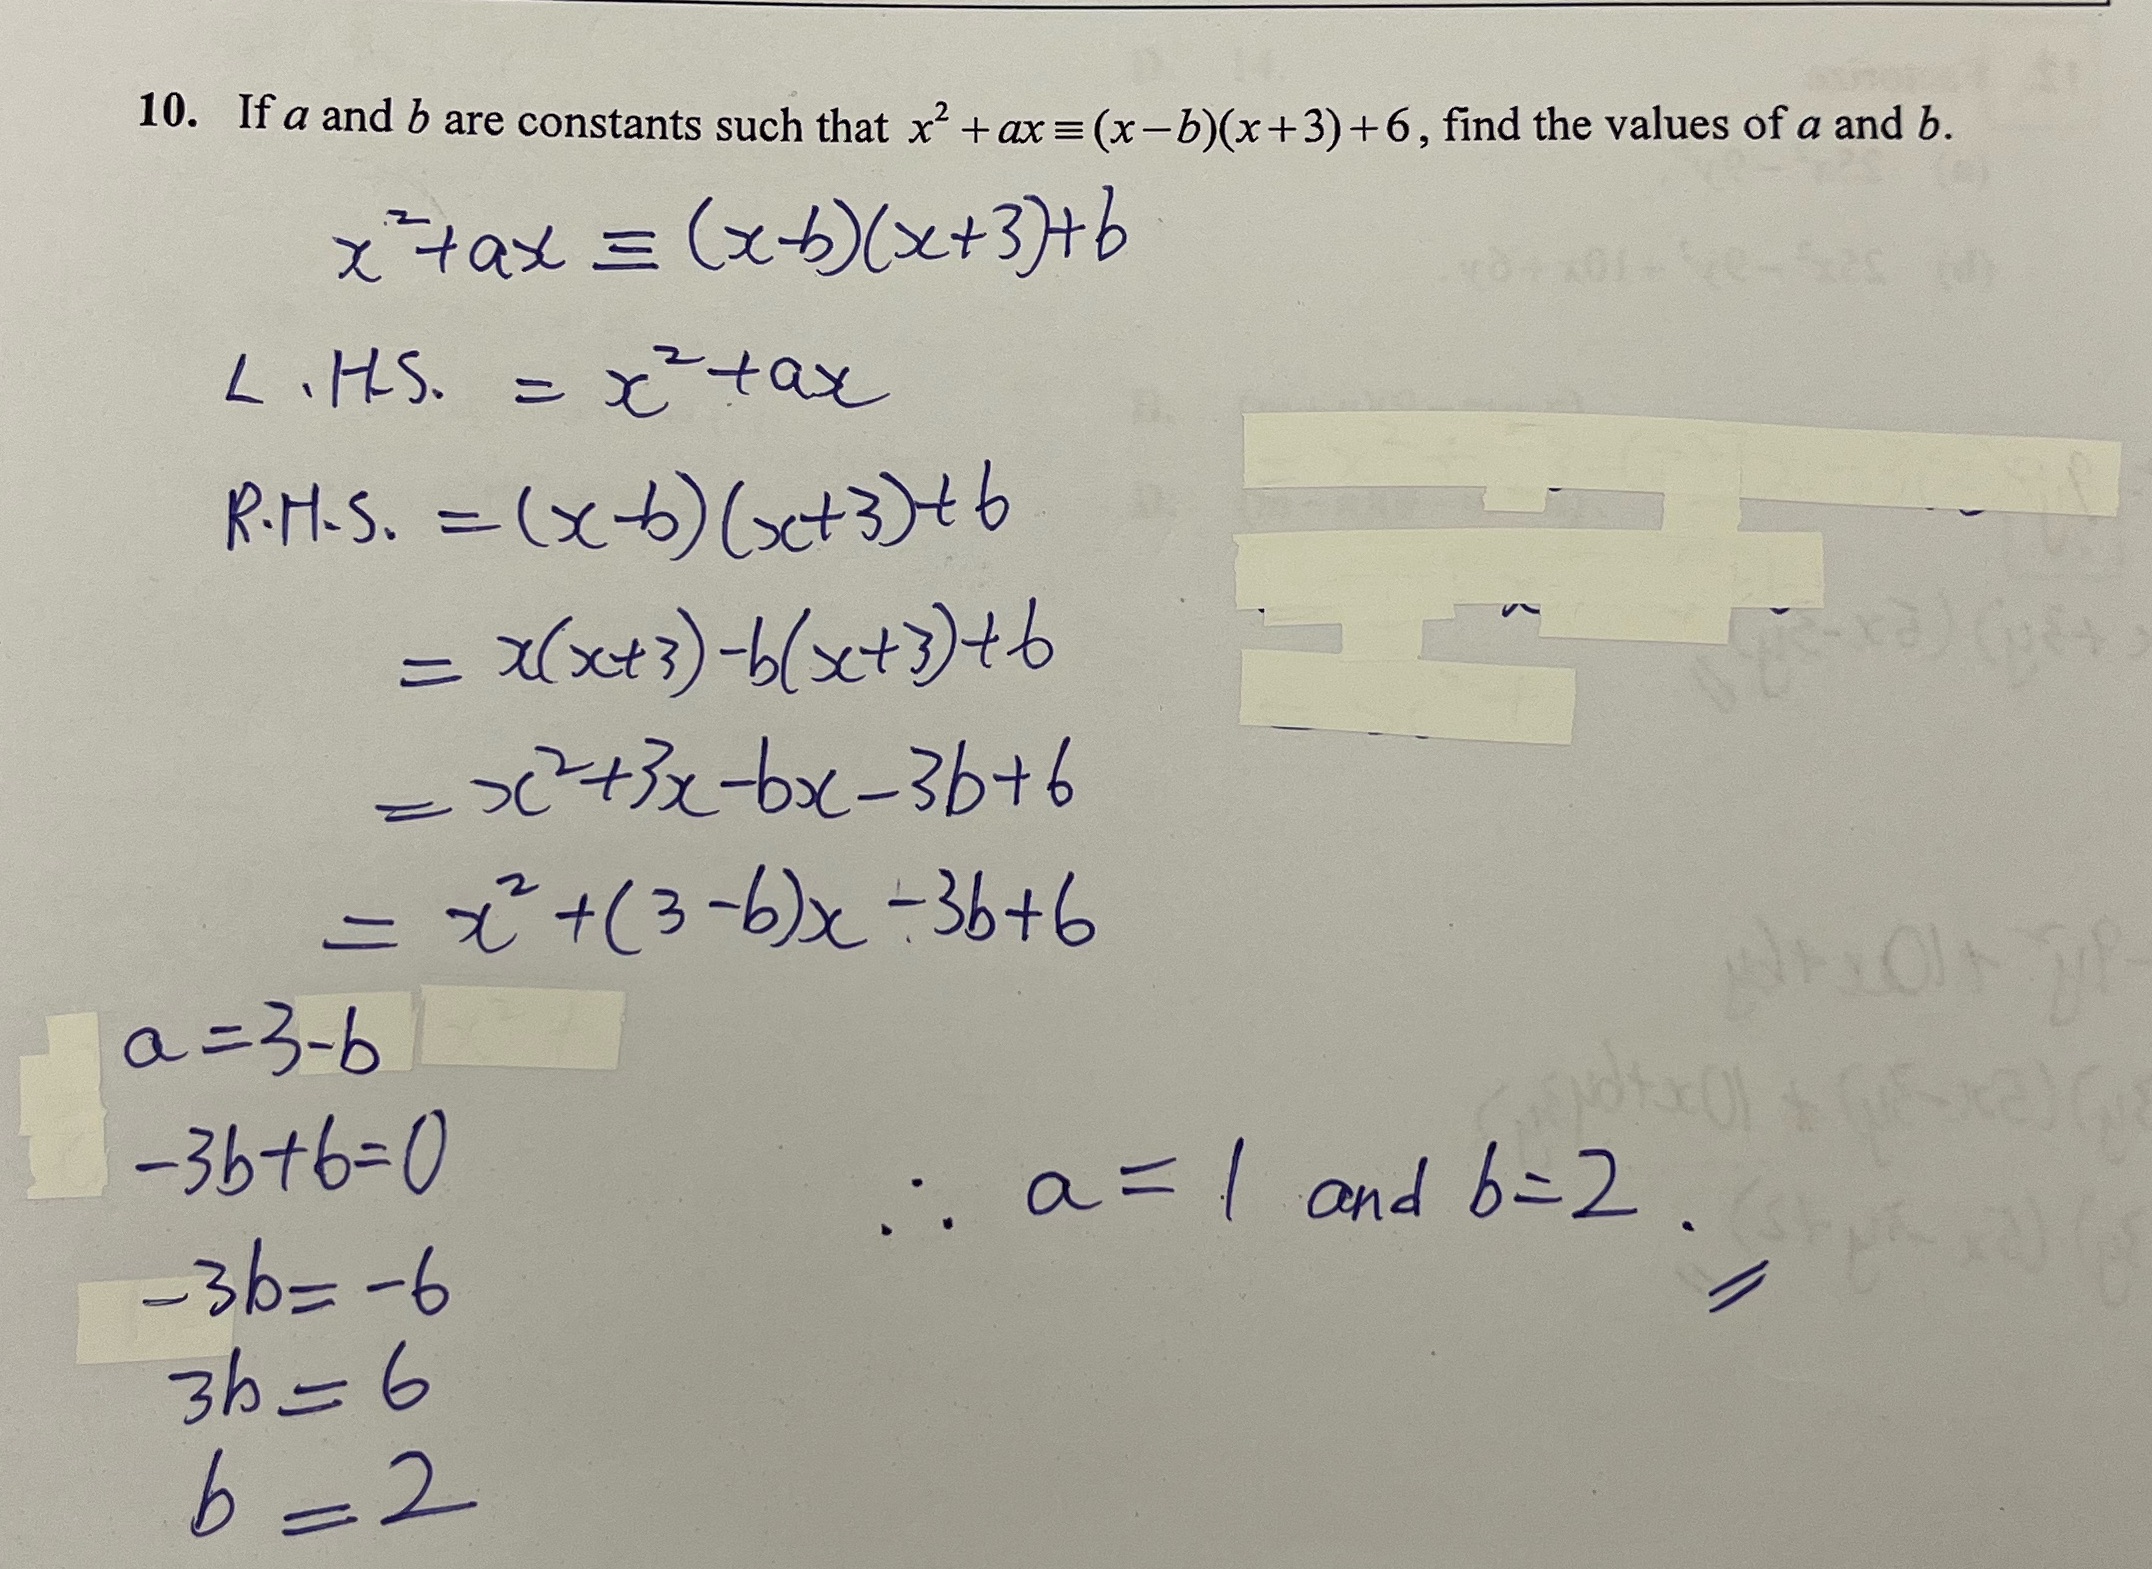 10. If a and b are constants such that x² + ax ≡ (x−b)(x+3)+6, find the values of a and b.
x²+ax ≡ (x-b)(x+3)+6
L.H.S. = x²+ax
R.H.S. = (x-b)(x+3)+6
= x(x+3)-b(x+3)+6
= x²+3x-bx-3b+6
= x²+(3-b)x-3b+6
a=3-b
-3b+6=0
-3b=-6
3b=6
b=2
∴ a=1 and b=2.